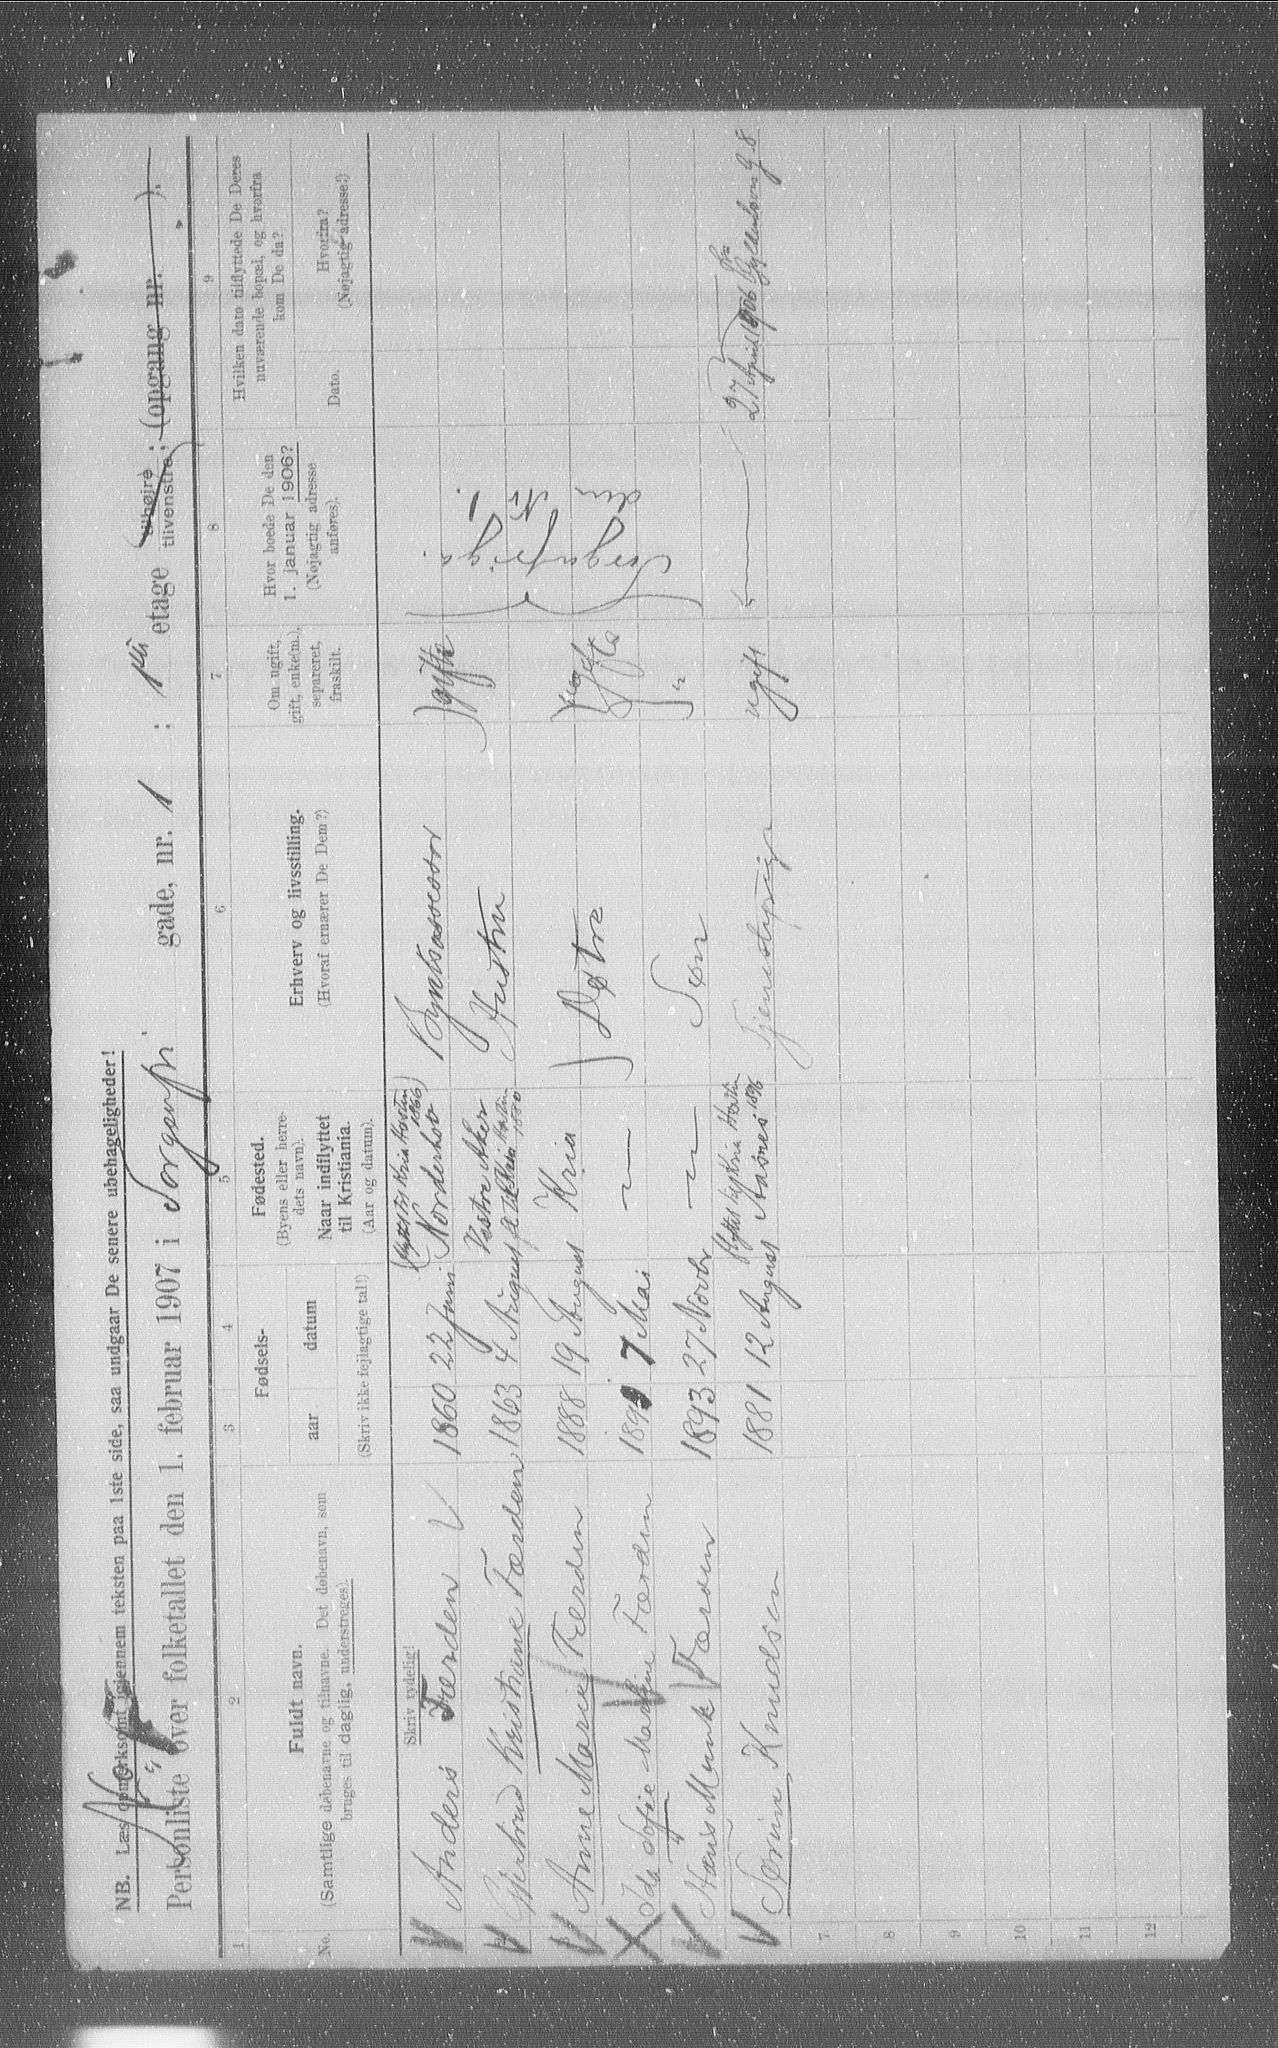 NB. Læs opmerksomt igjennem teksten paa 1ste side, saa undgaar De senere ubehageligheder!
Personliste over folketallet den 1. februar 1907 i Sorgenfri gade, nr. 1 ; 1ste etage tilhøjre tilvenstre ; (opgang nr. ).
1 2 3 4 5 6 7 8 9
No.
Fuldt navn.
(Samtlige døbenavne og tilnavne. Det døbenavn, som
bruges til daglig, understreges).
Fødsels-
aar datum
(Skriv ikke fejlagtige tal!)
Fødested.
(Byens eller herre-
dets navn).
Naar indflyttet
til Kristiania.
(Aar og datum).
Erhverv og livsstilling.
(Hvoraf ernærer De Dem?)
Om ugift,
gift, enke(m.),
separeret,
fraskilt.
Hvor boede De den
1. januar 1906?
(Nøjagtig adresse
anføres).
Hvilken dato tilflyttede De Deres
nuværende bopæl, og hvorfra
kom De da?
Dato.
Hvorfra?
(Nøjagtig adresse!)
Skriv tydelig!
Anders Færden 1860 22 Juni Norderhov gifte
Gjertrud Kristiane Færden 1863 4 August Vestre Aker Hustru
Anne Marie Færden 1888 19 August Kria Døtre
Ida Sofie Martine Færden 7 Mai — " —
Hans Munk Færden 1893 27 Novbr — " — Søn
Sørine Knudsen 1881 12 August Aasnes 1896 Tjenestepige ugift 27 April 1906 fra Gyldenløvesg. 8
7
8
9
10
11
12